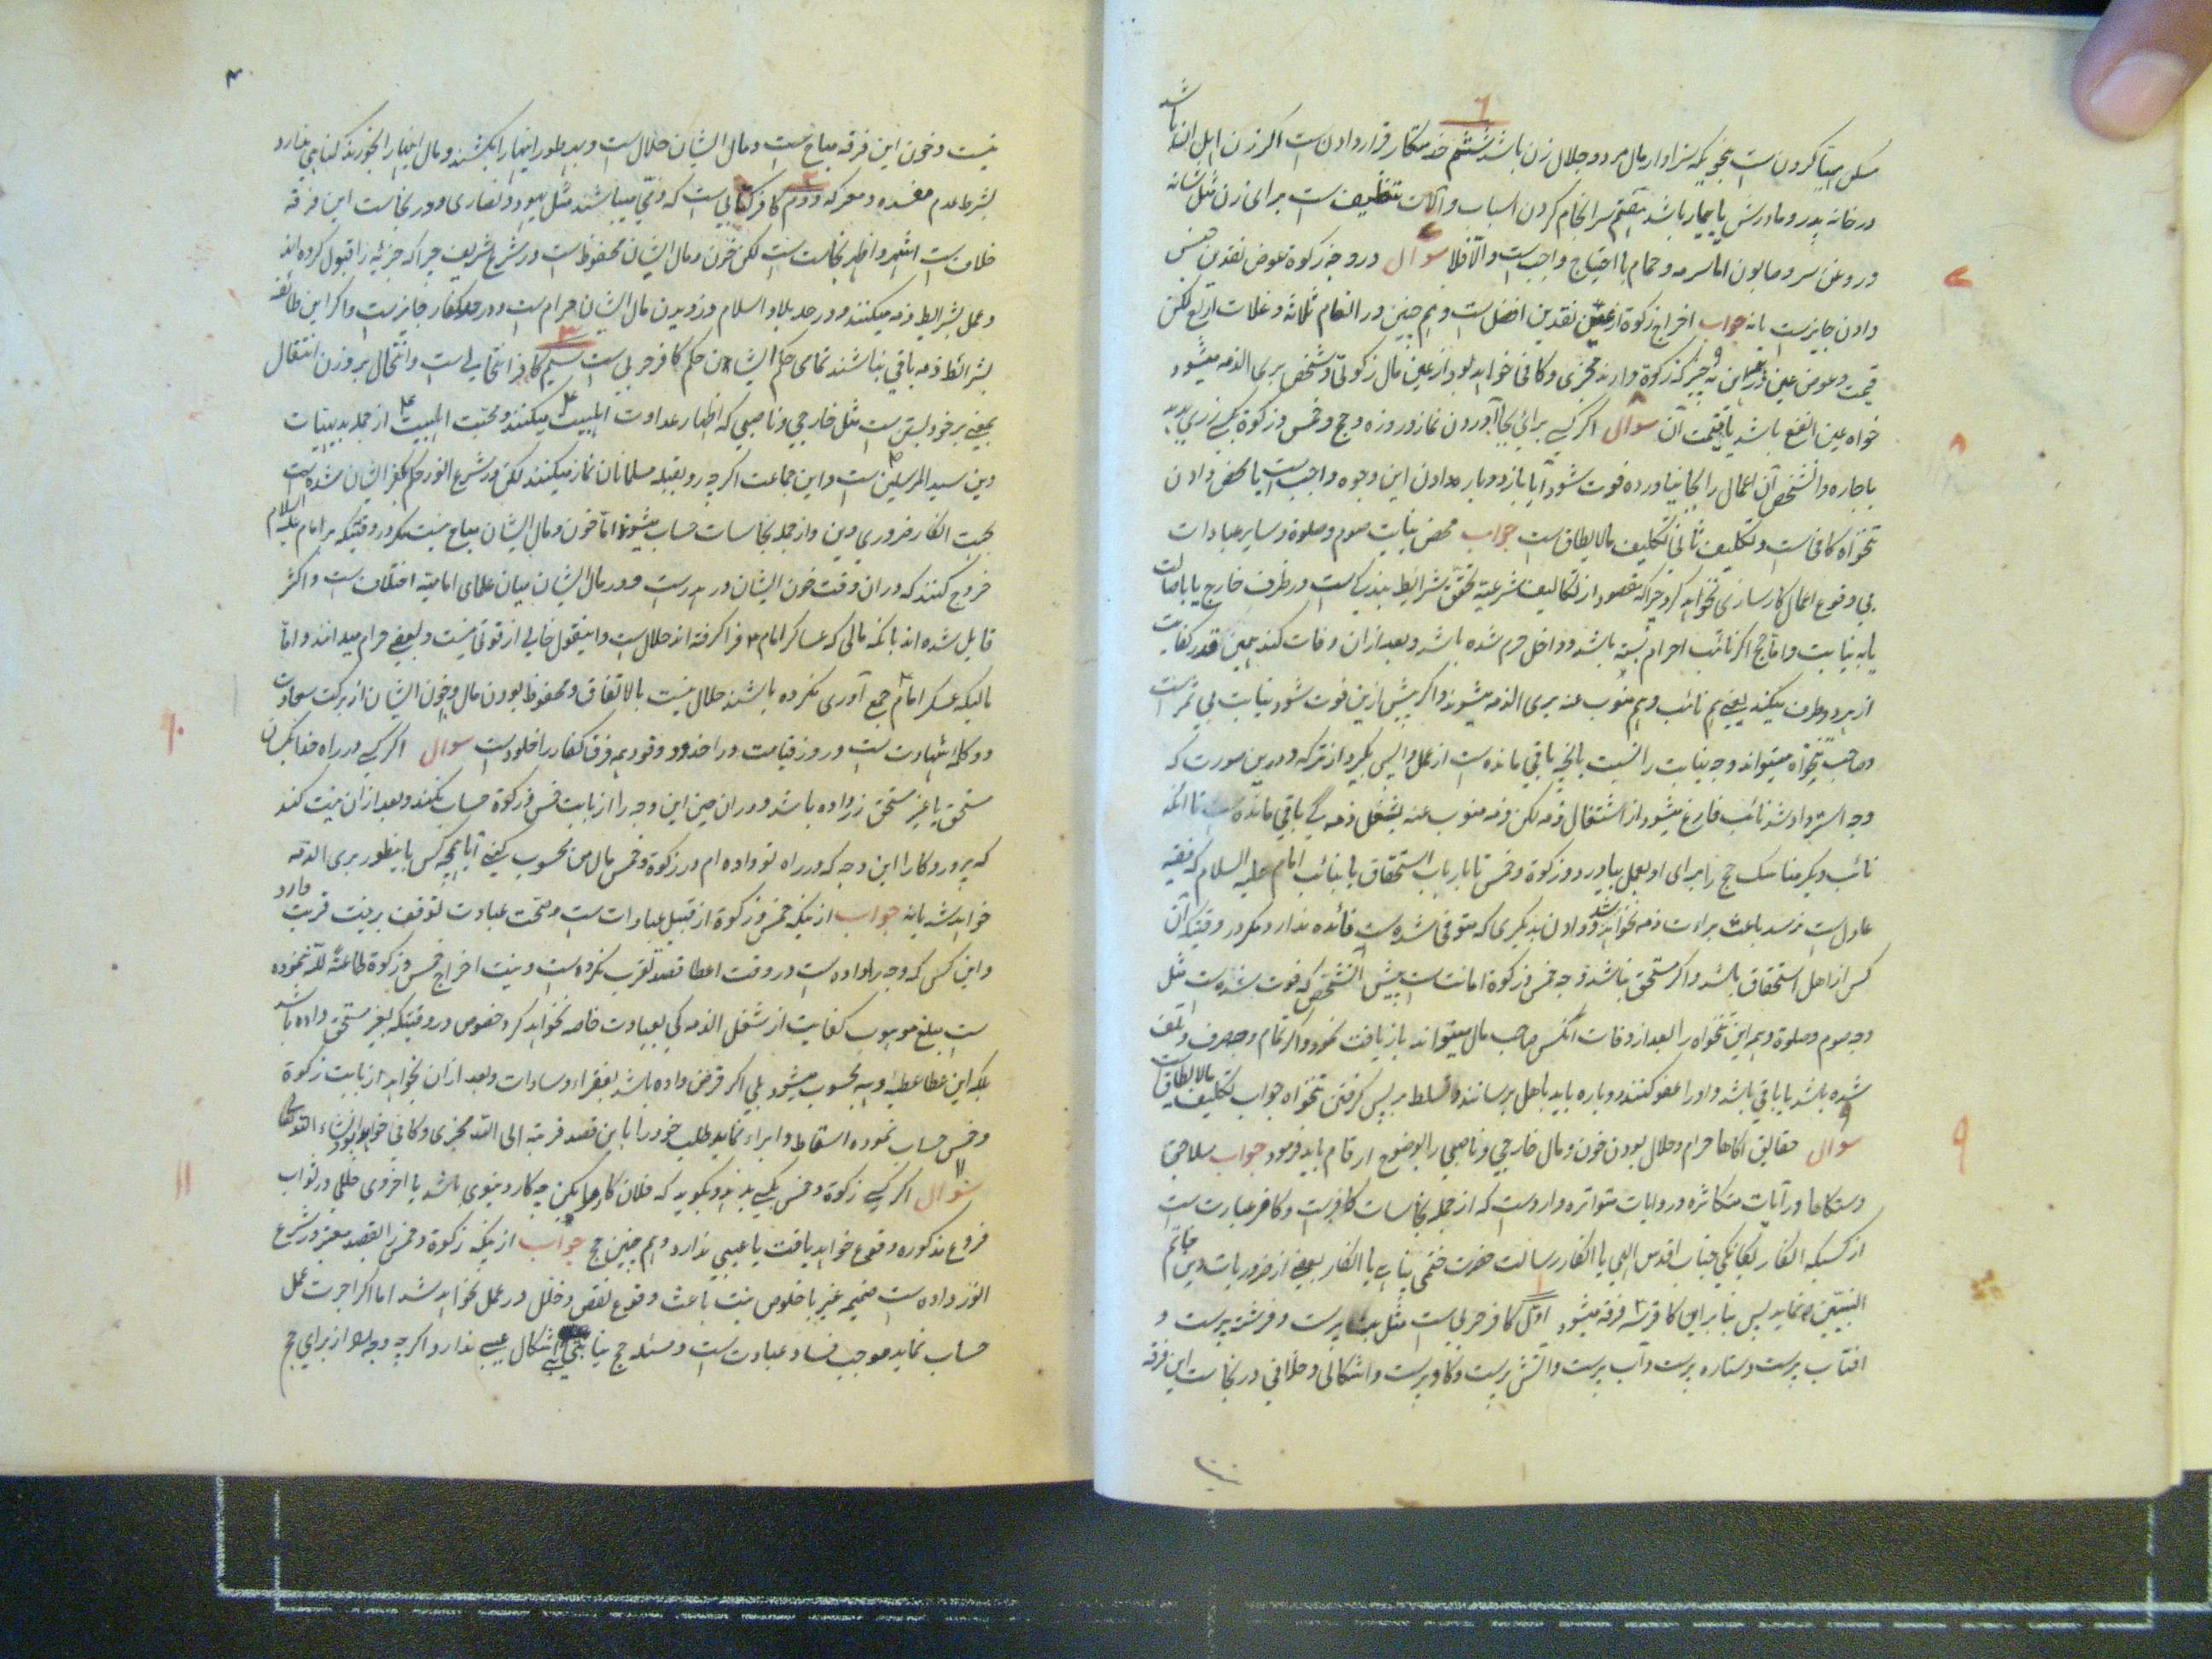 ٦
مسکن مهیا کردن است بنحویکه سزاوار مال مرد و جلال زن باشد ششم خدمتکار قرار دادن است اگر زن اهل ان باشد
در خانه پدر و مادرش یا بیمار باشد هفتم سرانجام کردن اسباب و آلات تنظیف است برای زن مثل شانه
و روغن سر و صابون اما سرمه و حمام با احتیاج واجب است والا فلا سوال در وجه زکوة عوض نقدین جنس
دادن جایز است یا نه جواب اخراج زکوة از عین نقدین افضل است و هم چنین در انعام ثلاثه و غلات اربع لکن
قیمت و عوض عین در این نه چیز که زکوة دارند مجزی و کافی خواهد بود از عین مال زکوتی و شخص بری الذمه میشود
خواه عین انفع باشد یا قیمت آن سوال اگر کسی برای بجا آوردن نماز و روزه و حج و خمس و زکوة بکسی زری بدهد
باجاره و آنشخص آن اعمال را بجا نیاورده فوت شود آیا باز دوباره دادن این وجوه واجب است یا محض دادن
تنخواه کافی است و تکلیف ثانی تکلیف مالایطاق است جواب محض نیابت صوم و صلوة و سایر عبادات
بی وقوع اعمال کارسازی نخواهد کرد چرا که مقصود از تکالیف شرعیه تحقق شرایط بندگی است در ظرف خارج یا باصالت
یا به نیابت و اما حج اگر نائب احرام بسته باشد و داخل حرم شده باشد و بعد از ان وفات کند همین قدر کفایت
از هر دو طرف میکند یعنی هم نائب و هم منوب عنه بری الذمه میشوند و اگر پیش ازین فوت شود نیابت بی ثمر است
و صاحب تنخواه میتواند وجه نیابت را نسبت بانچه باقی مانده است از عمل واپس بگیرد از ترکه و در این صورت که
وجه استرداد شد نائب فارغ میشود از اشتغال ذمه لکن ذمه منوب عنه بشغل ذمه گی باقی مانده است تا انکه
نائب دیگر مناسک حج را برای او بعمل بیاورد و زکوة و خمس تا بارباب استحقاق یا بنائب امام علیه السلام که فقیه
عادل است نرسد باعث براءت ذمه نخواهد شد و دادن بدیگری که متوفی شده است فائده ندارد مگر در وقتیکه آن
کس از اهل استحقاق باشد و اگر مستحق نباشد وجه خمس و زکوة امانت است پیش آنشخص که فوت شده است مثل
وجه صوم و صلوة و همه این تنخواه را بعد از وفات آنکس صاحب مال میتواند بازیافت نمود و اگر تمام وجه صرف و تلف
شده باشد یا باقی باشد و او را عفو کنند دوباره باید باهل برسانند و تسلط بر پس گرفتن تنخواه جواب تکلیف مالایطاق است
سوال حقایق آگاها حرام و حلال بودن خون و مال خارجی و ناصبی را بوضوح ارقام باید فرمود جواب
دستگاها در آیات متکاثره و روایات متواتره وارد است که از جمله نجاسات کافر است و کافر عبارت است
از کسیکه انکار یگانگی جناب اقدس الهی یا انکار رسالت حضرت ختمی پناهی یا انکار بعضی از ضروریات دین خاتم
النبیین نماید پس بنابراین کافر سه فرقه میشود اول کافر حربی است مثل بت پرست و فرشته پرست و
افتاب پرست و ستاره پرست و آب پرست و آتش پرست و گاو پرست و اشکالی و خلافی در نجاست این فرقه
٧
٨
٩
نیست و خون این فرقه مباح است و مال ایشان حلال است و بهر طور اینها را بکشند و مال اینها را بخورند گناهی ندارد
بشرط عدم مفسده و معرکه دوم کافر کتابی است که ذمی میباشند مثل یهود و نصاری و در نجاست این فرقه
خلاف است اشهر و اظهر نجاست است لکن خون و مال ایشان محفوظ است در شرع شریف چرا که جزیه را قبول کرده اند
و عمل بشرایط ذمه میکنند و در حد بلاد اسلام دزدیدن مال ایشان حرام است و در حد کفار جایز است و اگر این طائفه
بشرائط ذمه باقی نباشند تمامی حکم ایشان حکم کافر حربی است سیم کافر انتحالی است و انتحال بر وزن انتقال
بمعنی بر خود بستن است مثل خارجی و ناصبی که اظهار عداوت اهلبیت میکنند و محبت اهلبیت از جمله بدیهیات
دین سید المرسلین است و این جماعت اگر چه رو بقبله مسلمانان نماز میکنند لکن در شرع انور حکم بکفر ایشان شده است
بجهت انکار ضروری دین و از جمله نجاسات حساب میشوند اما خون و مال ایشان مباح نیست مگر در وقتیکه بر امام علیه السلام
خروج کنند که در ان وقت خون ایشان هدر است و در مال ایشان میان علمای امامیه اختلاف است و اکثر
قایل شده اند بانکه مالی که عساکر امام فرا گرفته اند حلال است و اینقول خالی از قوتی نیست و بعضی حرام میدانند و اما
مالیکه عسکر امام جمع آوری نکرده باشند حلال نیست بالاتفاق و محفوظ بودن مال و خون ایشان از برکت سعادت
دو کلمه شهادت است و روز قیامت در اخدود وقود همه فرق کفار را خلود است سوال اگر کسی در راه خدا بکسان
مستحق یا غیر مستحق زر داده باشد و در ان حین این وجه را از بابت خمس و زکوة حساب نکند و بعد از ان نیت کند
که پروردگارا این وجه که در راه تو داده ام در زکوة و خمس مال من محسوب کنی آیا چه کس باینطور بری الذمه
خواهد شد یا نه جواب از بسکه خمس و زکوة از قبیل عبادات است و صحت عبادت توقف بر نیت قربت دارد
و این کس که وجه را داده است در وقت اعطا قصد تقرب نکرده است و نیت اخراج خمس و زکوة طاعة لله ننموده
است مبلغ موهوب کفایت از شغل الذمه گی بعبادت خاصه نخواهد کرد خصوص در وقتیکه بغیر مستحق داده باشد
بلکه این عطا عطیه و هبه محسوب میشود بلی اگر قرض داده باشد بفقراء و سادات و بعد از ان بخواهد از بابت زکوة
و خمس حساب نموده اسقاط و ابراء نماید طلب خود را باین قصد قربة الی الله مجزی و کافی خواهد بود انشاء الله تعالی
سوال اگر کسی زکوة و خمس بکسی بدهد و بگوید که فلان کار ما بکن چه کار دنیوی باشد یا اخروی خللی در ثواب
فروع مذکوره وقوع خواهد یافت یا عیبی ندارد و هم چنین حج جواب از بسکه زکوة و خمس را قصد معتبر در شرع
انور داده است ضمیمه غیر با خلوص نیت باعث وقوع نقص و خلل در عمل نخواهد شد اما اگر اجرت عمل
حساب نماید موجب فساد عبادت است و مسئله حج نیابتی اشکال عیبی ندارد اگر چه وجه او از برای حج
١٠
١١